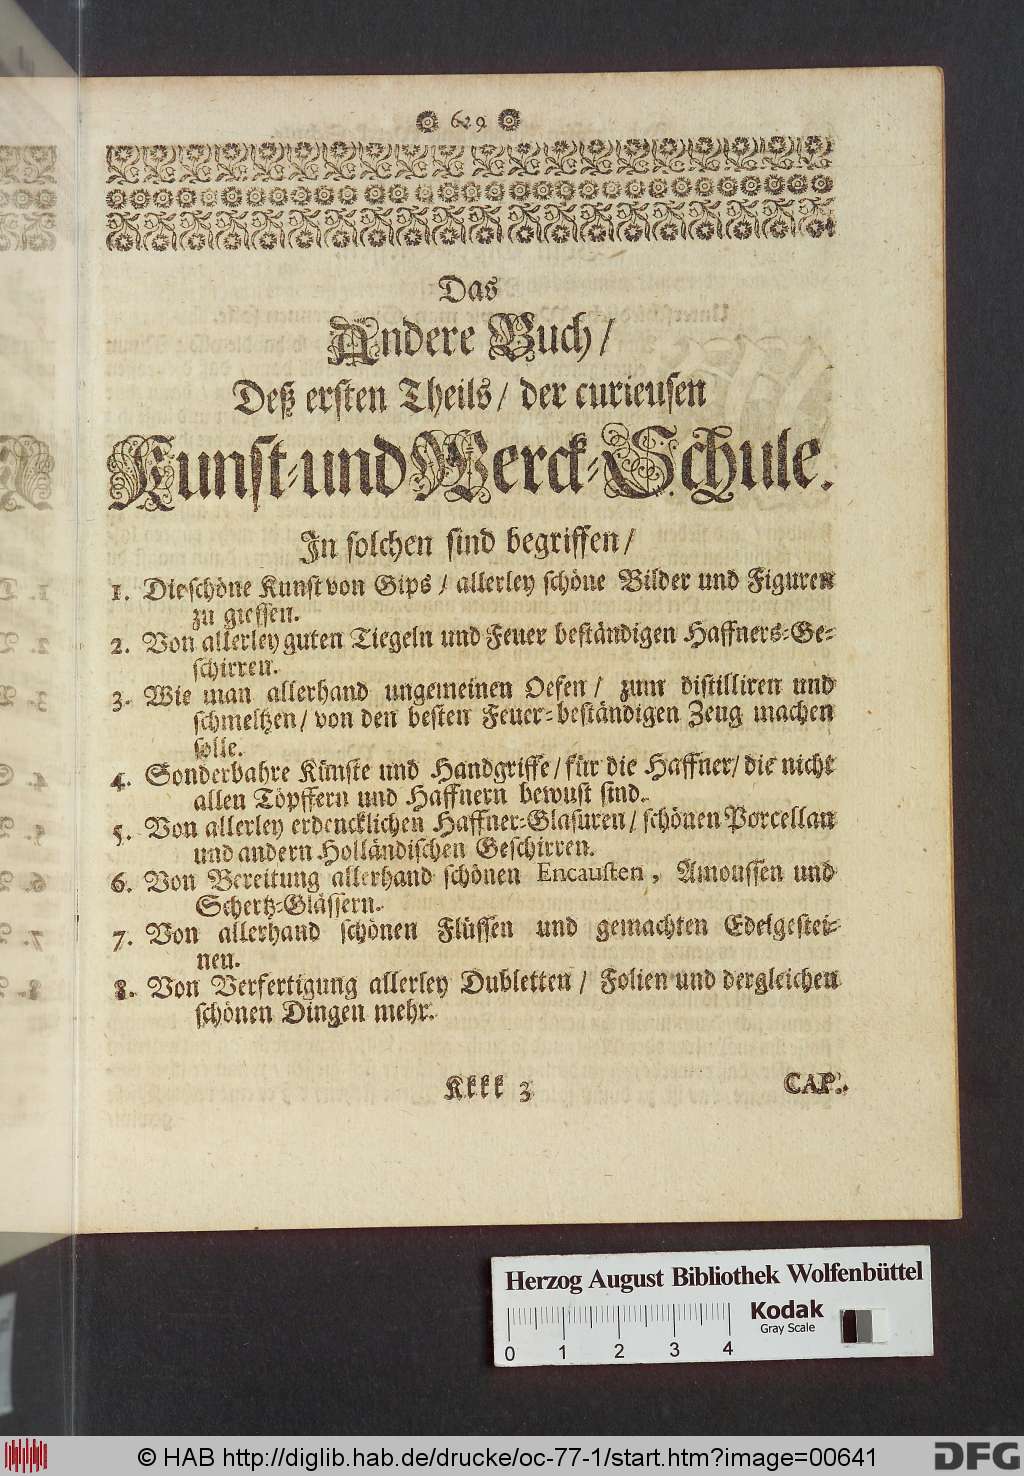 629
Das
Andere Buch/
Deß ersten Theils/ der curieusen
Kunst-und Werck-Schule.
In solchen sind begriffen/
1. Die schöne Kunst von Gips/ allerley schöne Bilder und Figuren
zu giessen.
2. Von allerley guten Tiegeln und Feuer beständigen Haffners-Ge-
schirren.
3. Wie man allerhand ungemeinen Oefen/ zum distilliren und
schmeltzen/ von den besten Feuer-beständigen Zeug machen
solle.
4. Sonderbahre Künste und Handgriffe/ für die Haffner/ die nicht
allen Töpffern und Haffnern bewust sind.
5. Von allerley erdencklichen Haffner-Glasuren/ schönen Porcellan
und andern Holländischen Geschirren.
6. Von Bereitung allerhand schönen Encausten, Amoussen und
Schertz-Glässern.
7. Von allerhand schönen Flüssen und gemachten Edelgestei-
nen.
8. Von Verfertigung allerley Dubletten/ Folien und dergleichen
schönen Dingen mehr.
Kkkk 3 CAP.
Herzog August Bibliothek Wolfenbüttel
Kodak
Gray Scale
0 1 2 3 4
© HAB http://diglib.hab.de/drucke/oc-77-1/start.htm?image=00641
DFG